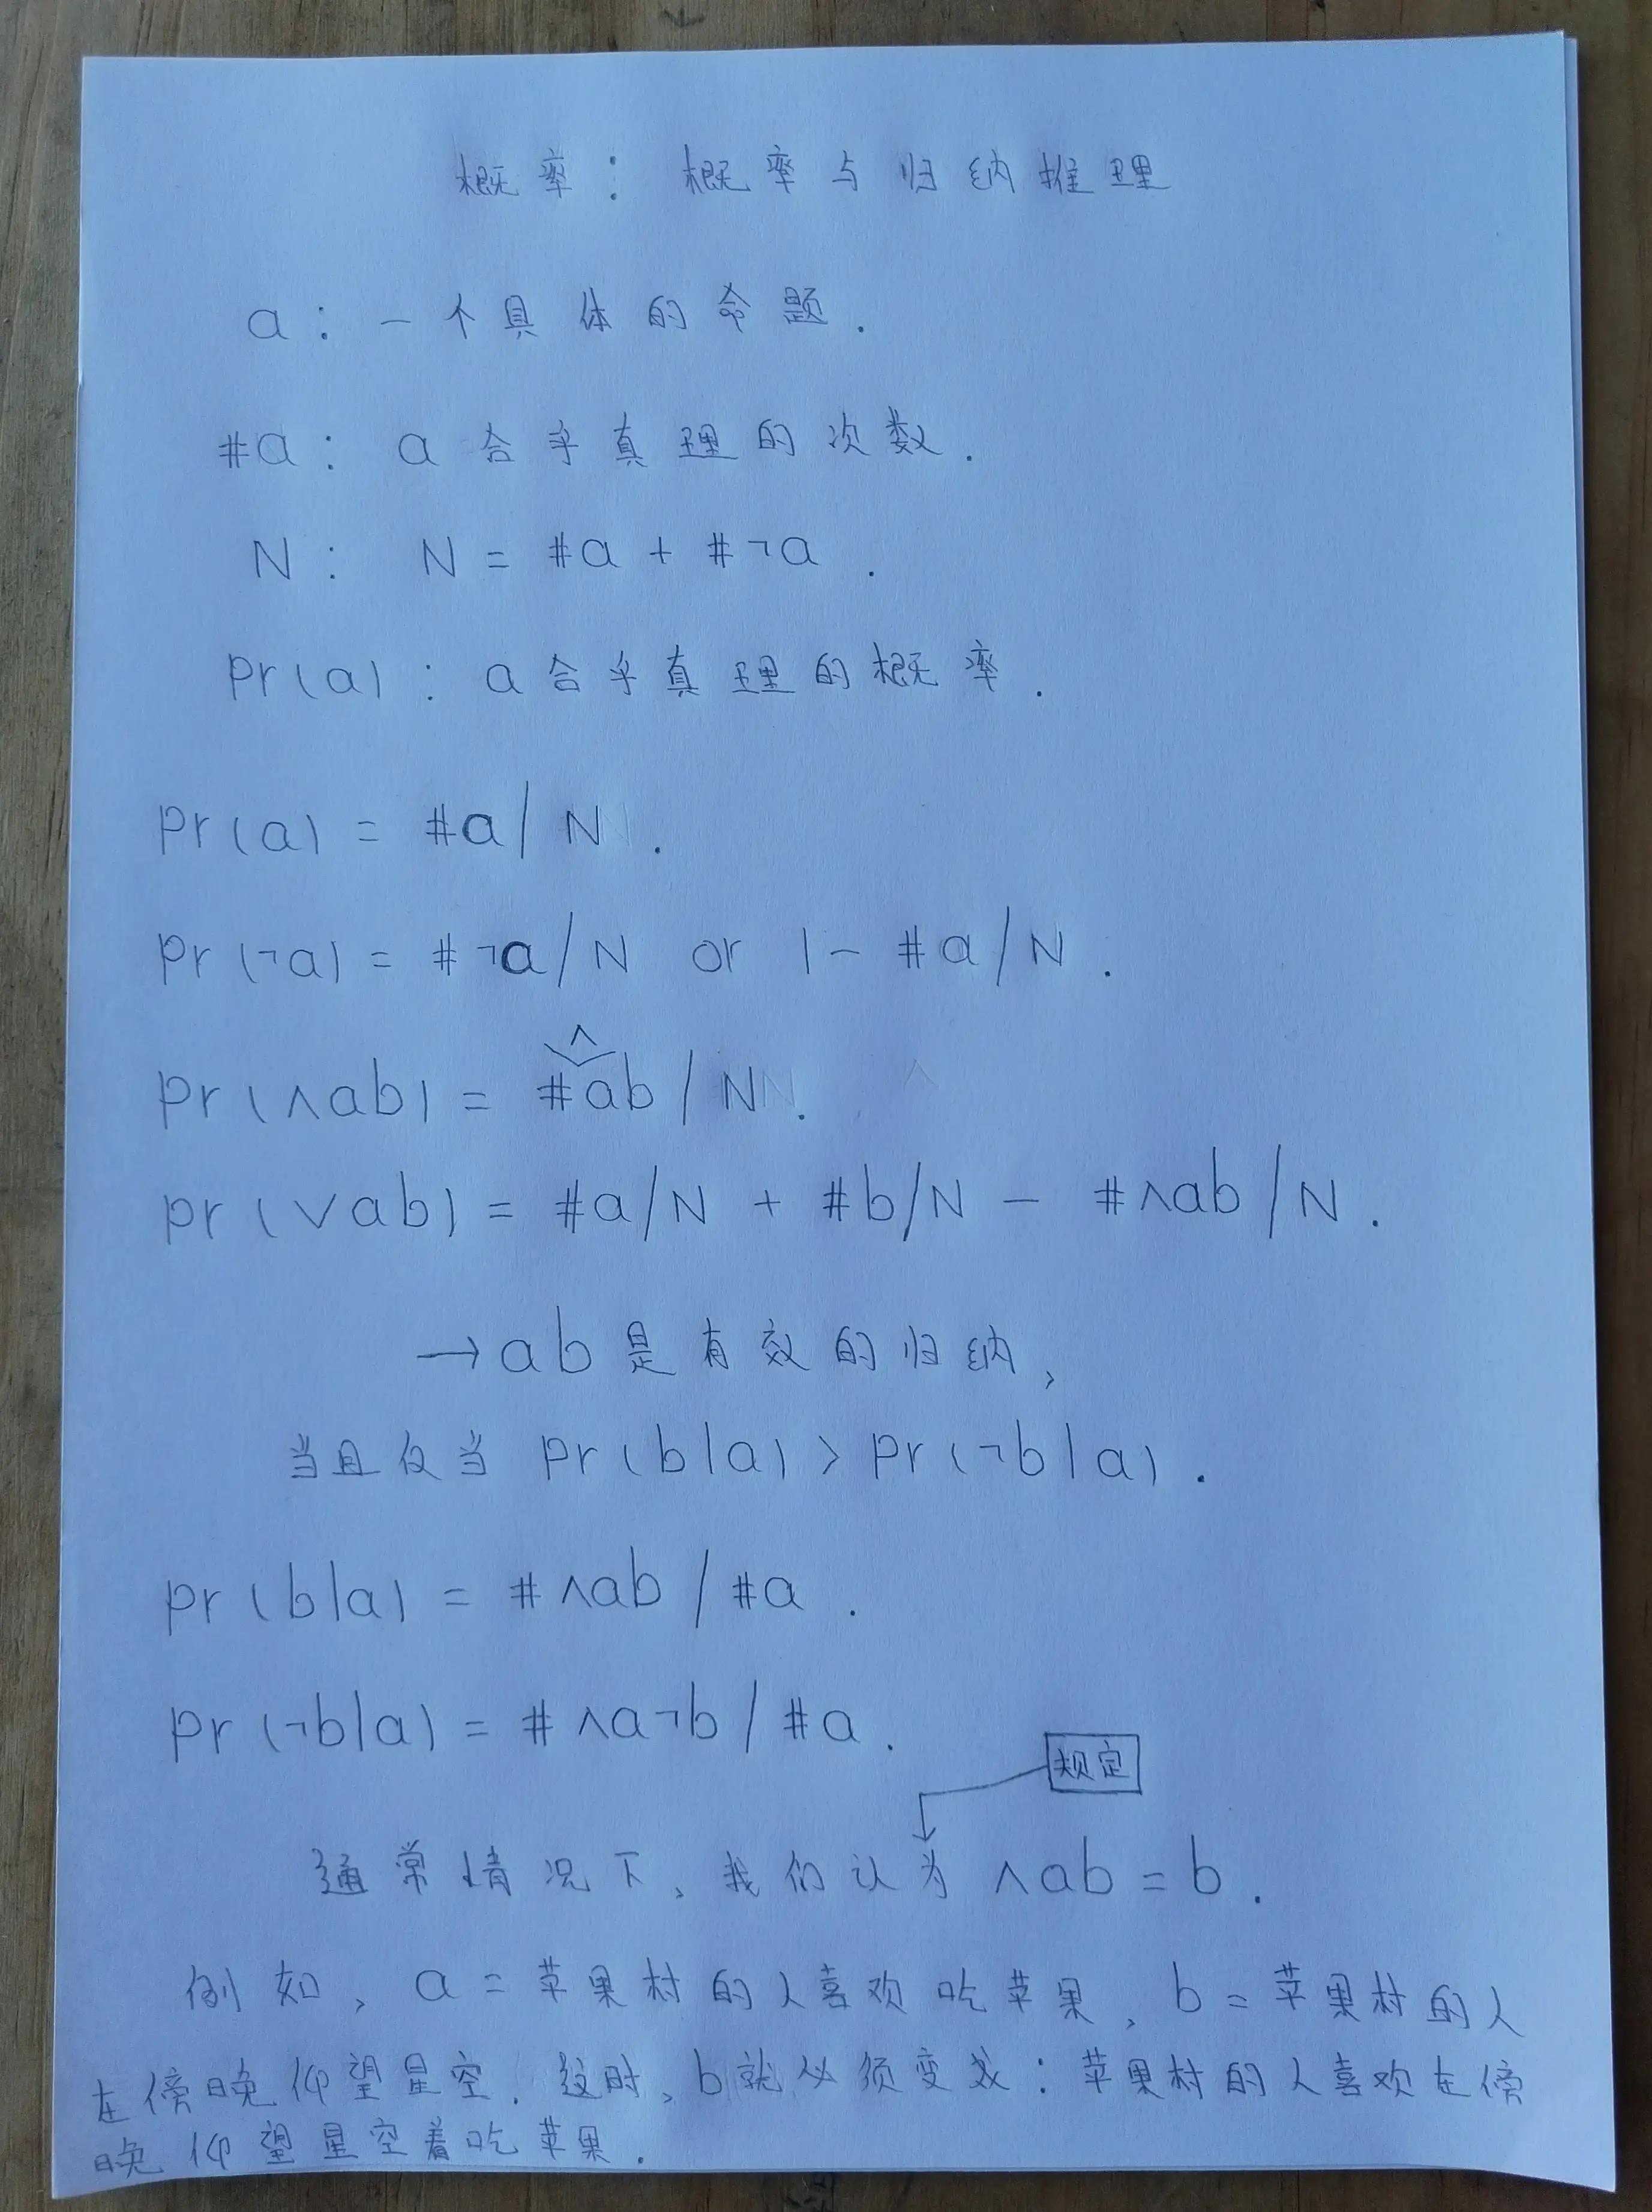 概率：概率与归纳推理
a：一个具体的命题.
#a：a合乎真理的次数.
N：N = #a + #¬a.
Pr(a)：a合乎真理的概率.
Pr(a) = #a/N.
Pr(¬a) = #¬a/N or 1- #a/N.
∧
Pr(∧ab) = #ab/N.
Pr(∨ab) = #a/N + #b/N - #∧ab/N.
→ab是有效的归纳、
当且仅当 Pr(b|a) > Pr(¬b|a).
Pr(b|a) = #∧ab/#a.
Pr(¬b|a) = #∧a¬b/#a.
规定
通常情况下、我们认为 ∧ab = b.
例如、a = 苹果村的人喜欢吃苹果、b = 苹果村的人
在傍晚仰望星空. 这时、b就必须变成：苹果村的人喜欢在傍
晚仰望星空着吃苹果.